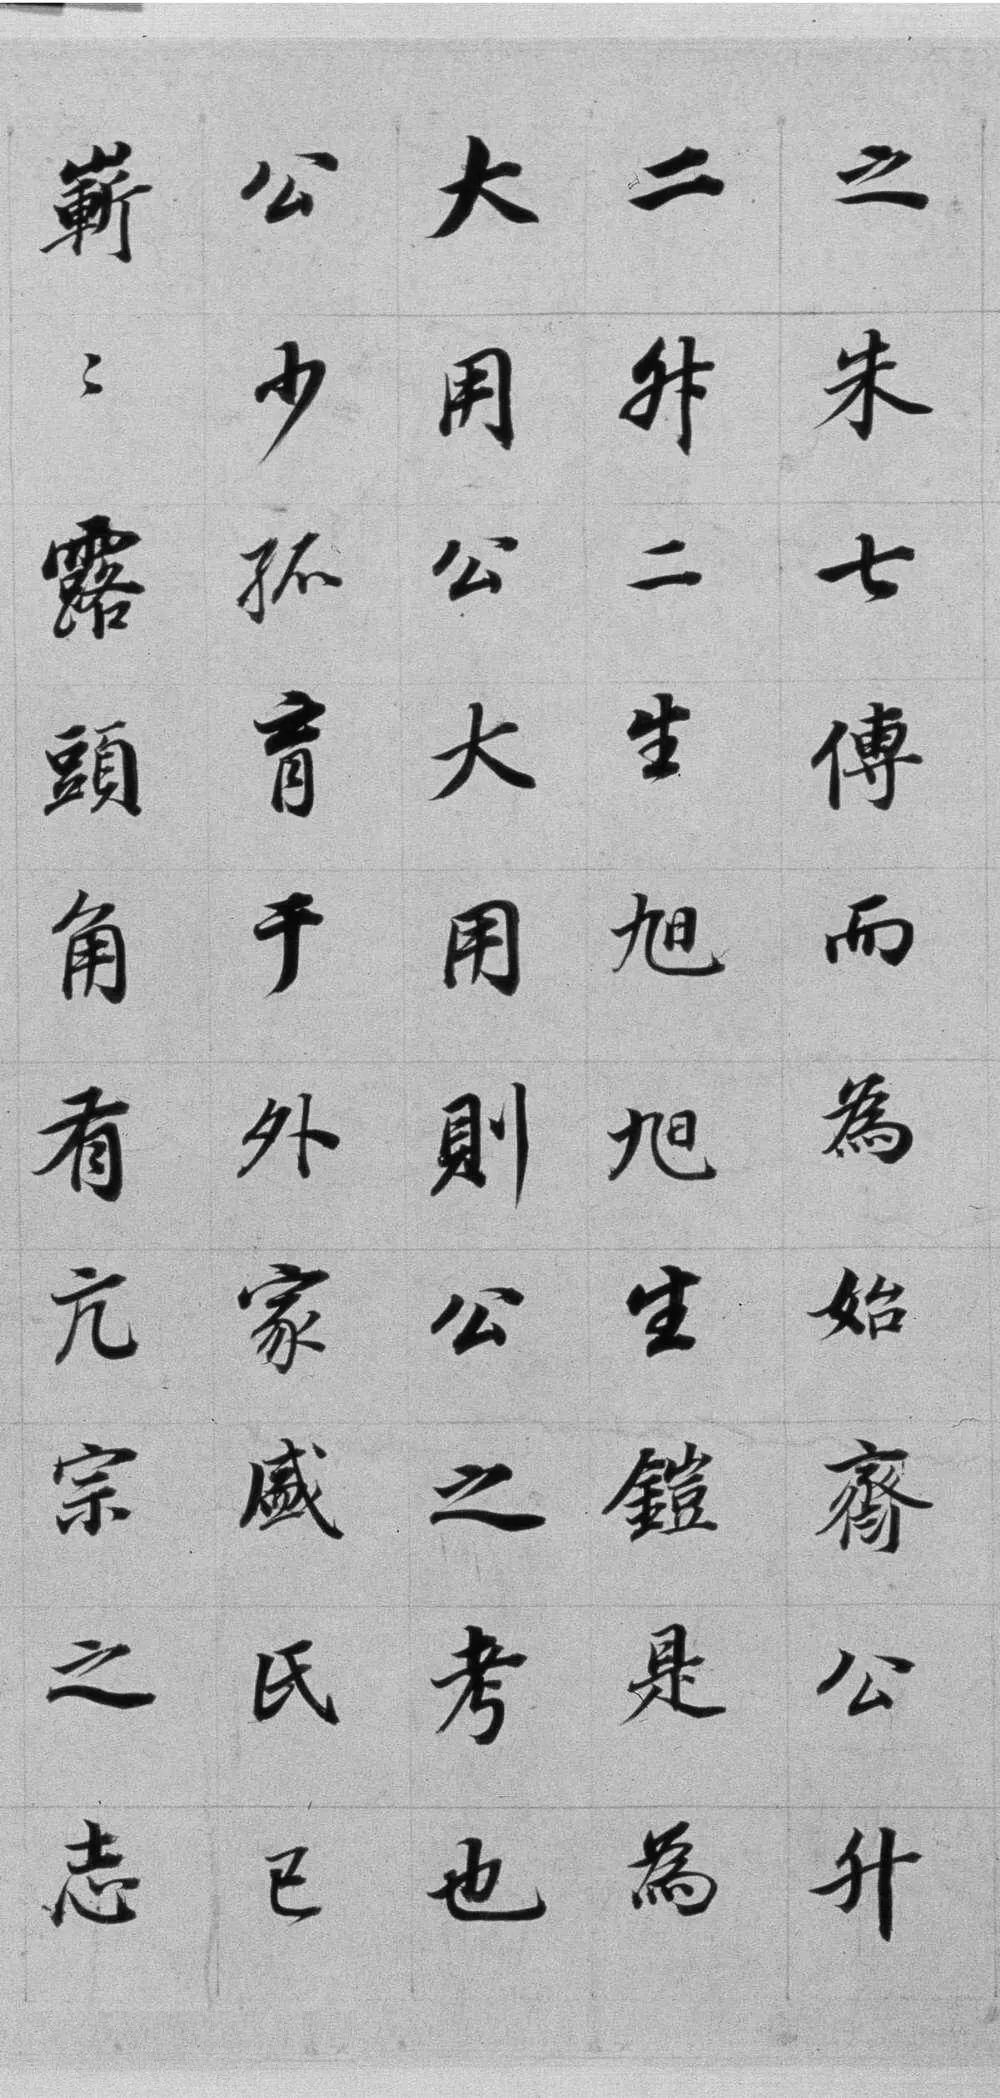 之朱七傅而為始齋公升
二升二生旭旭生鎧是為
大用公大用則公之考也
公少孤育于外家盛氏已
嶄〻露頭角有亢宗之志